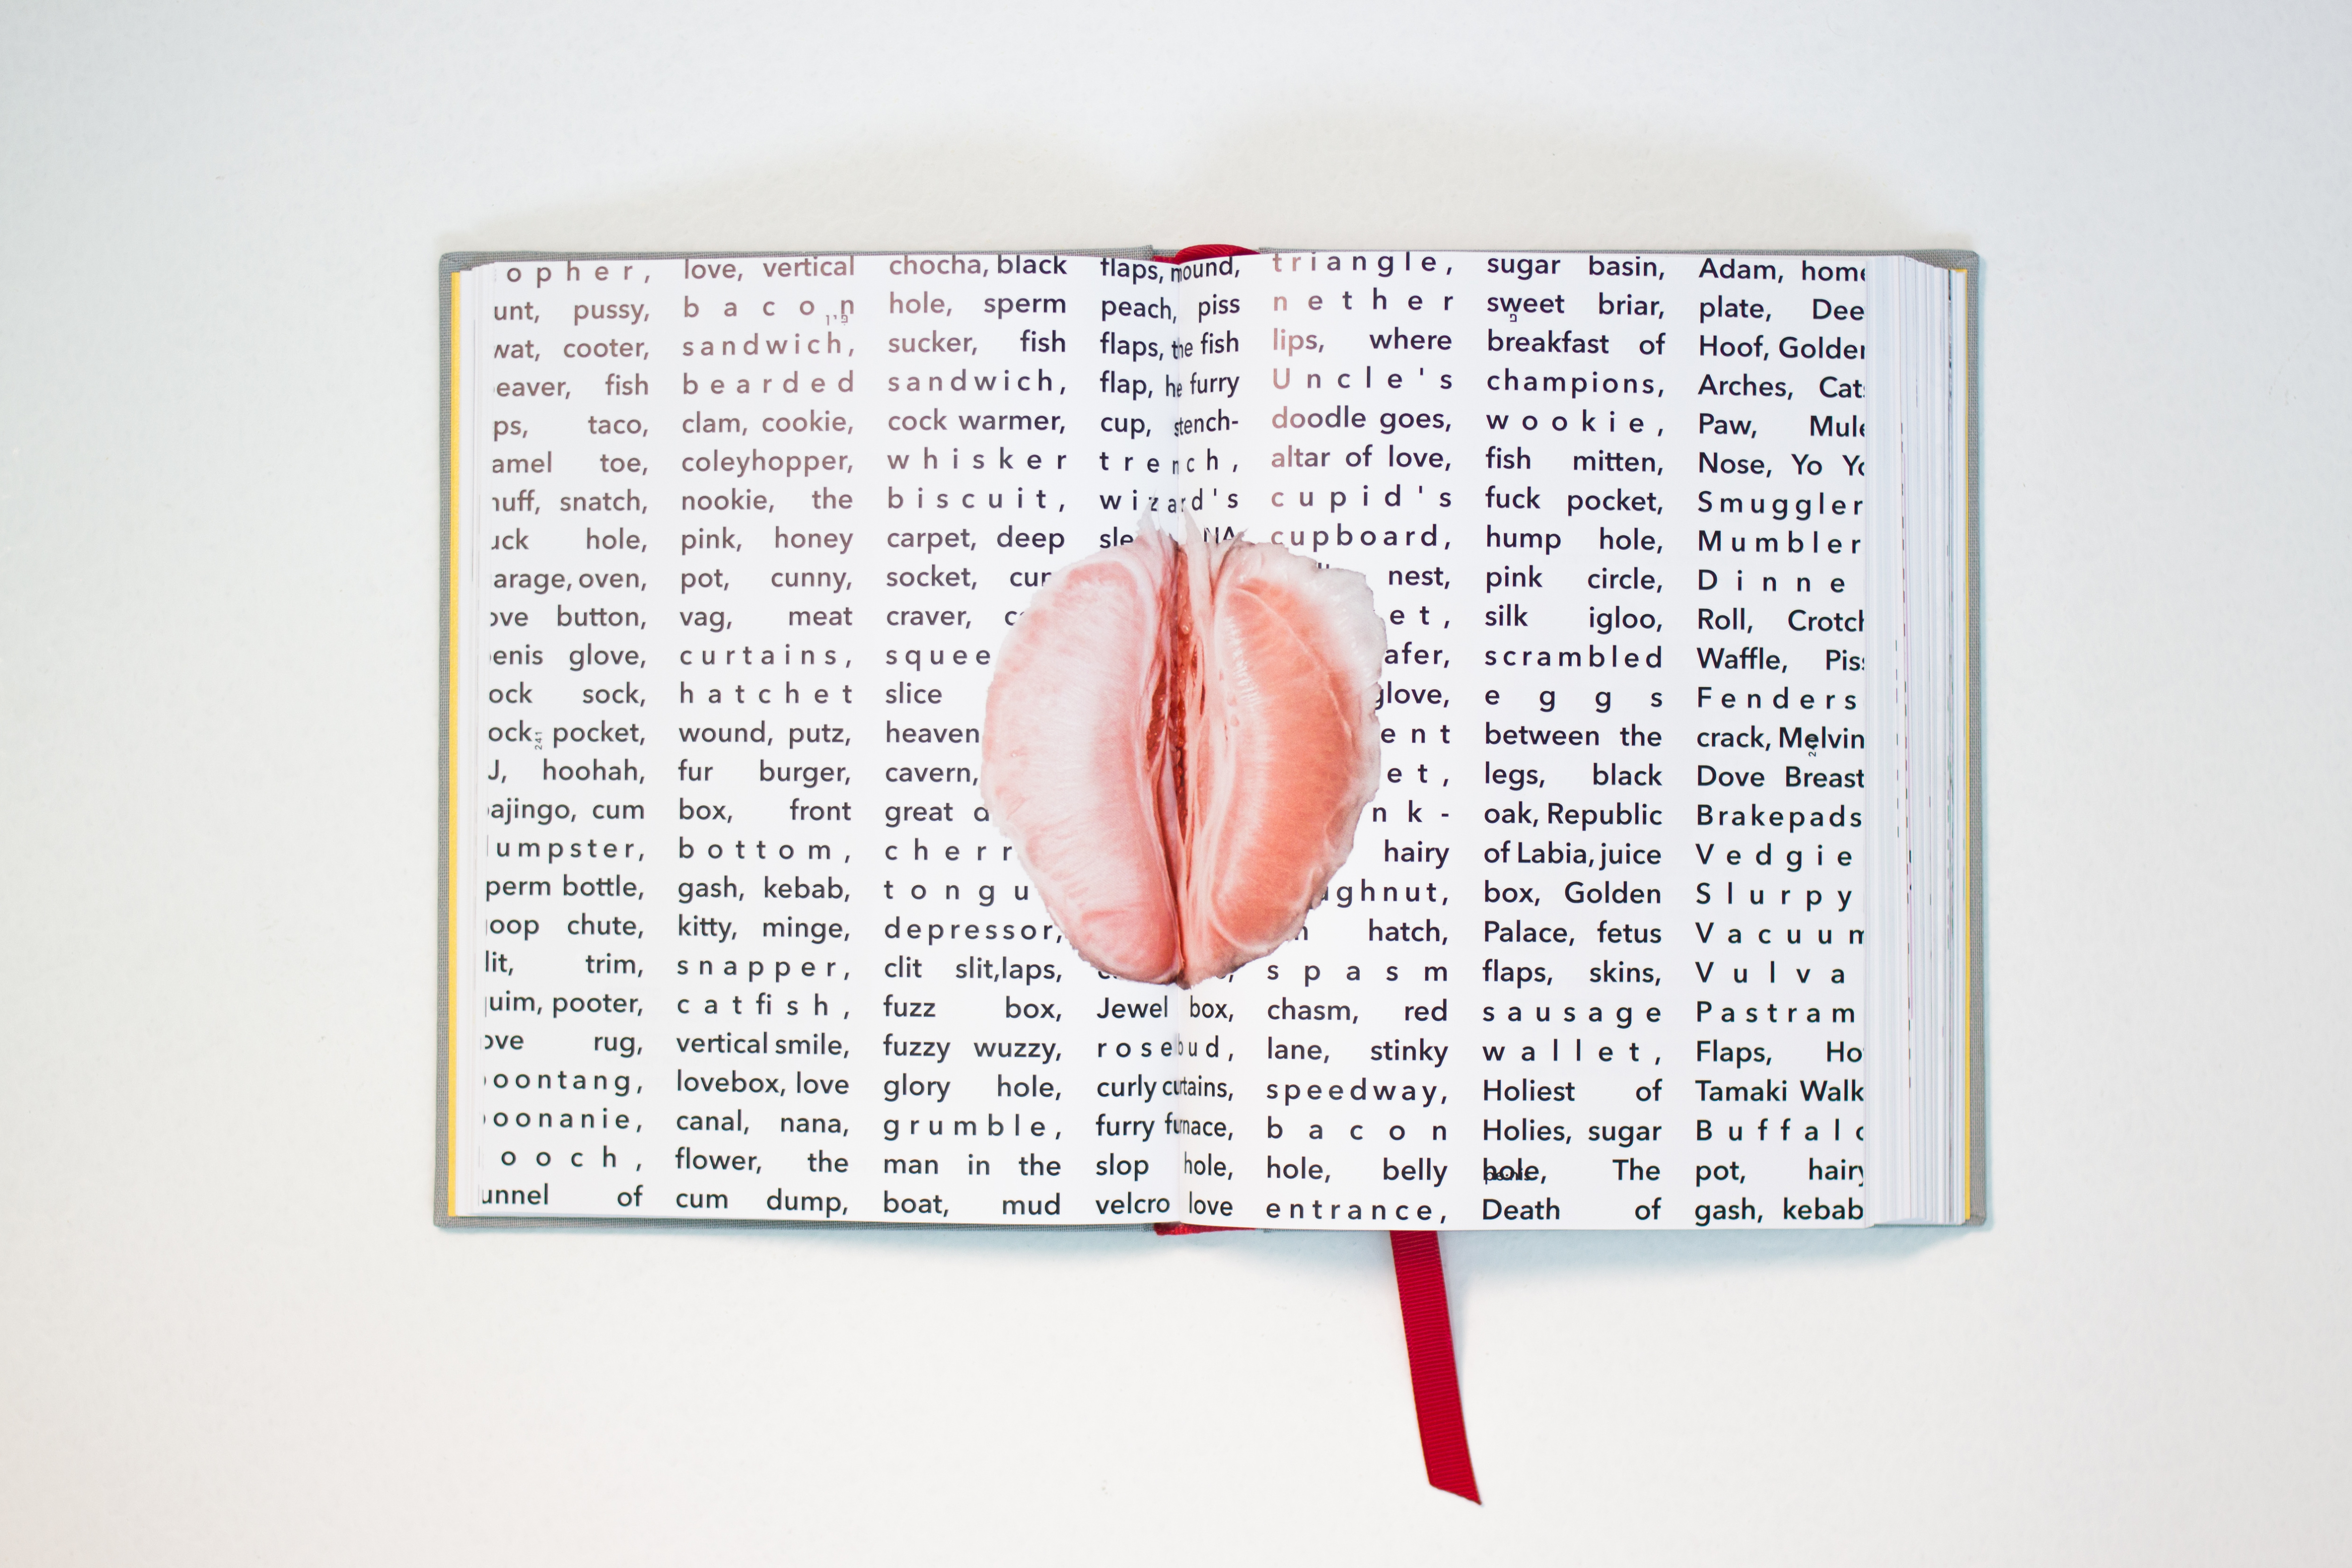 opher,
unt, pussy,
wat, cooter,
eaver, fish
ps, taco,
amel toe,
nuff, snatch,
uck hole,
arage, oven,
ove button,
enis glove,
ock sock,
ock pocket,
J, hoohah,
ajingo, cum
umpster,
perm bottle,
oop chute,
lit, trim,
uim, pooter,
ove rug,
oontang,
oonanie,
ooch,
unnel of
love, vertical
bacon
sandwich,
bearded
clam, cookie,
coleyhopper,
nookie, the
pink, honey
pot, cunny,
vag, meat
curtains,
hatchet
wound, putz,
fur burger,
box, front
bottom,
gash, kebab,
kitty, minge,
snapper,
catfish,
vertical smile,
lovebox, love
canal, nana,
flower, the
cum dump,
chocha, black
hole, sperm
sucker, fish
sandwich,
cock warmer,
whisker
biscuit,
carpet, deep
socket, cum
craver, c
squee
slice
heaven
cavern,
great
cherr
tongu
depressor,
clit slit,laps,
fuzz box,
fuzzy wuzzy,
glory hole,
grumble,
man in the
boat, mud
flaps, mound,
peach, piss
flaps, the fish
flap, he furry
cup, stench-
trench,
wizard's
sle
Jewel box,
rosebud,
curly curtains,
furry furnace,
slop hole,
velcro love
triangle,
nether
lips, where
Uncle's
doodle goes,
altar of love,
cupid's
cupboard,
nest,
et,
afer,
glove,
ent
et,
nk-
hairy
ughnut,
hatch,
spasm
chasm, red
lane, stinky
speedway,
bacon
hole, belly
entrance,
sugar basin,
sweet briar,
breakfast of
champions,
wookie,
fish mitten,
fuck pocket,
hump hole,
pink circle,
silk igloo,
scrambled
eggs
between the
legs, black
oak, Republic
of Labia, juice
box, Golden
Palace, fetus
flaps, skins,
sausage
wallet,
Holiest of
Holies, sugar
hole, The
Death of
Adam, home
plate, Dee
Hoof, Golden
Arches, Cats
Paw, Mule
Nose, Yo Yo
Smuggler
Mumbler
Dinne
Roll, Crotch
Waffle, Piss
Fenders
crack, Melvin
Dove Breast
Brakepads
Vedgie
Slurpy
Vacuum
Vulva
Pastram
Flaps, Ho
Tamaki Walk
Buffalo
pot, hairy
gash, kebab
241